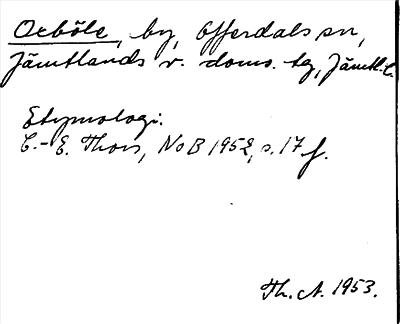 Ocböle, by, Offerdals sn,
Jämtlands v. doms. tg, Jämtl. l.
Etymologi.
C.-E. Thors, NoB 1952, s. 17 f.
Th. A. 1953.